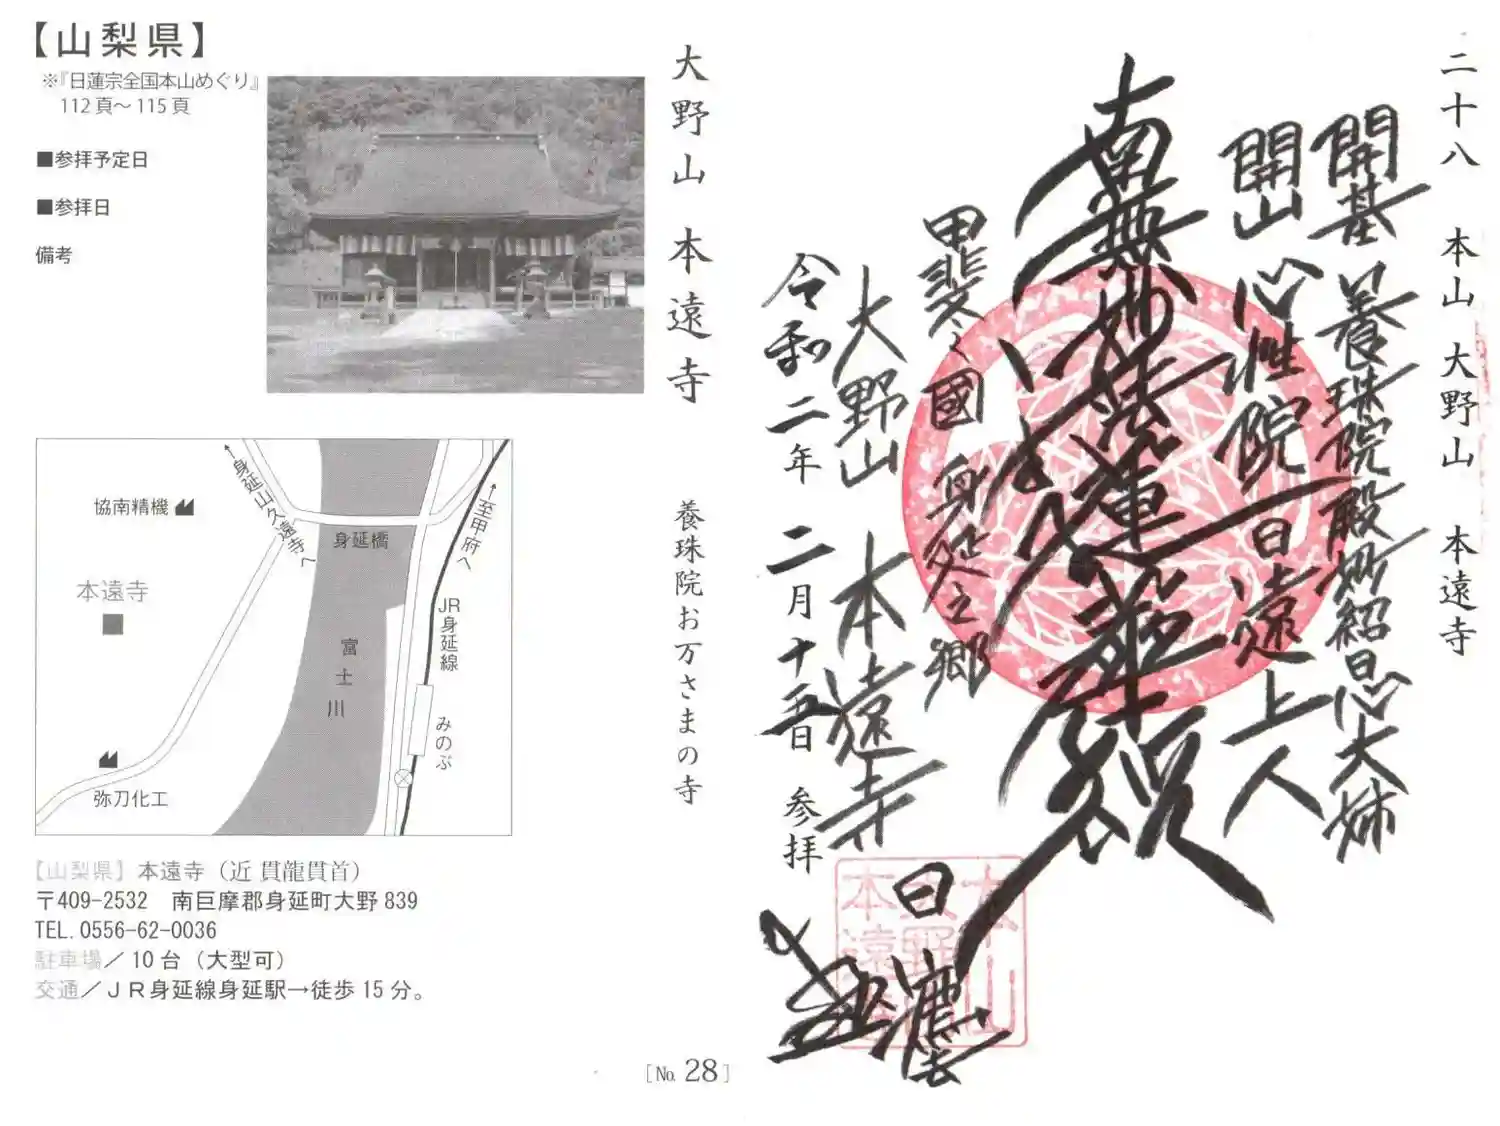 【山梨県】
※『日蓮宗全国本山めぐり』
112頁〜115頁
■参拝予定日
■参拝日
備考
大野山 本遠寺
養珠院お万さまの寺
↑身延山久遠寺へ
協南精機
身延橋
至甲府へ
本遠寺
JR身延線
富士川
みのぶ
弥刀化工
【山梨県】本遠寺（近 貫龍貫首）
〒409-2532 南巨摩郡身延町大野839
TEL.0556-62-0036
駐車場／10台（大型可）
交通／ＪＲ身延線身延駅→徒歩15分。
[No. 28]
二十八 本山 大野山 本遠寺
開基 養珠院殿妙紹日心大姉
開山 心性院日遠上人
南無妙法蓮華経
甲斐之國 身延之郷
大野山 本遠寺
令和二年 二月十五日 参拝
本山
大野山
本遠寺